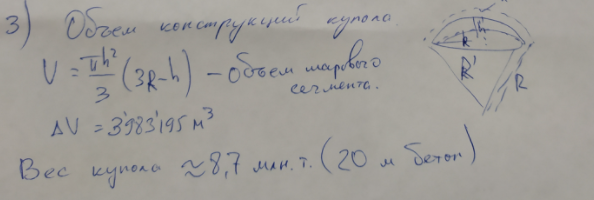 3) Объем конструкций купола.
V = πh²/3 (3R-h) - Объем шарового сегмента.
ΔV = 3'983'195 м³
Вес купола ≈ 8,7 млн.т. (20 м бетон)
h
R
R'
R